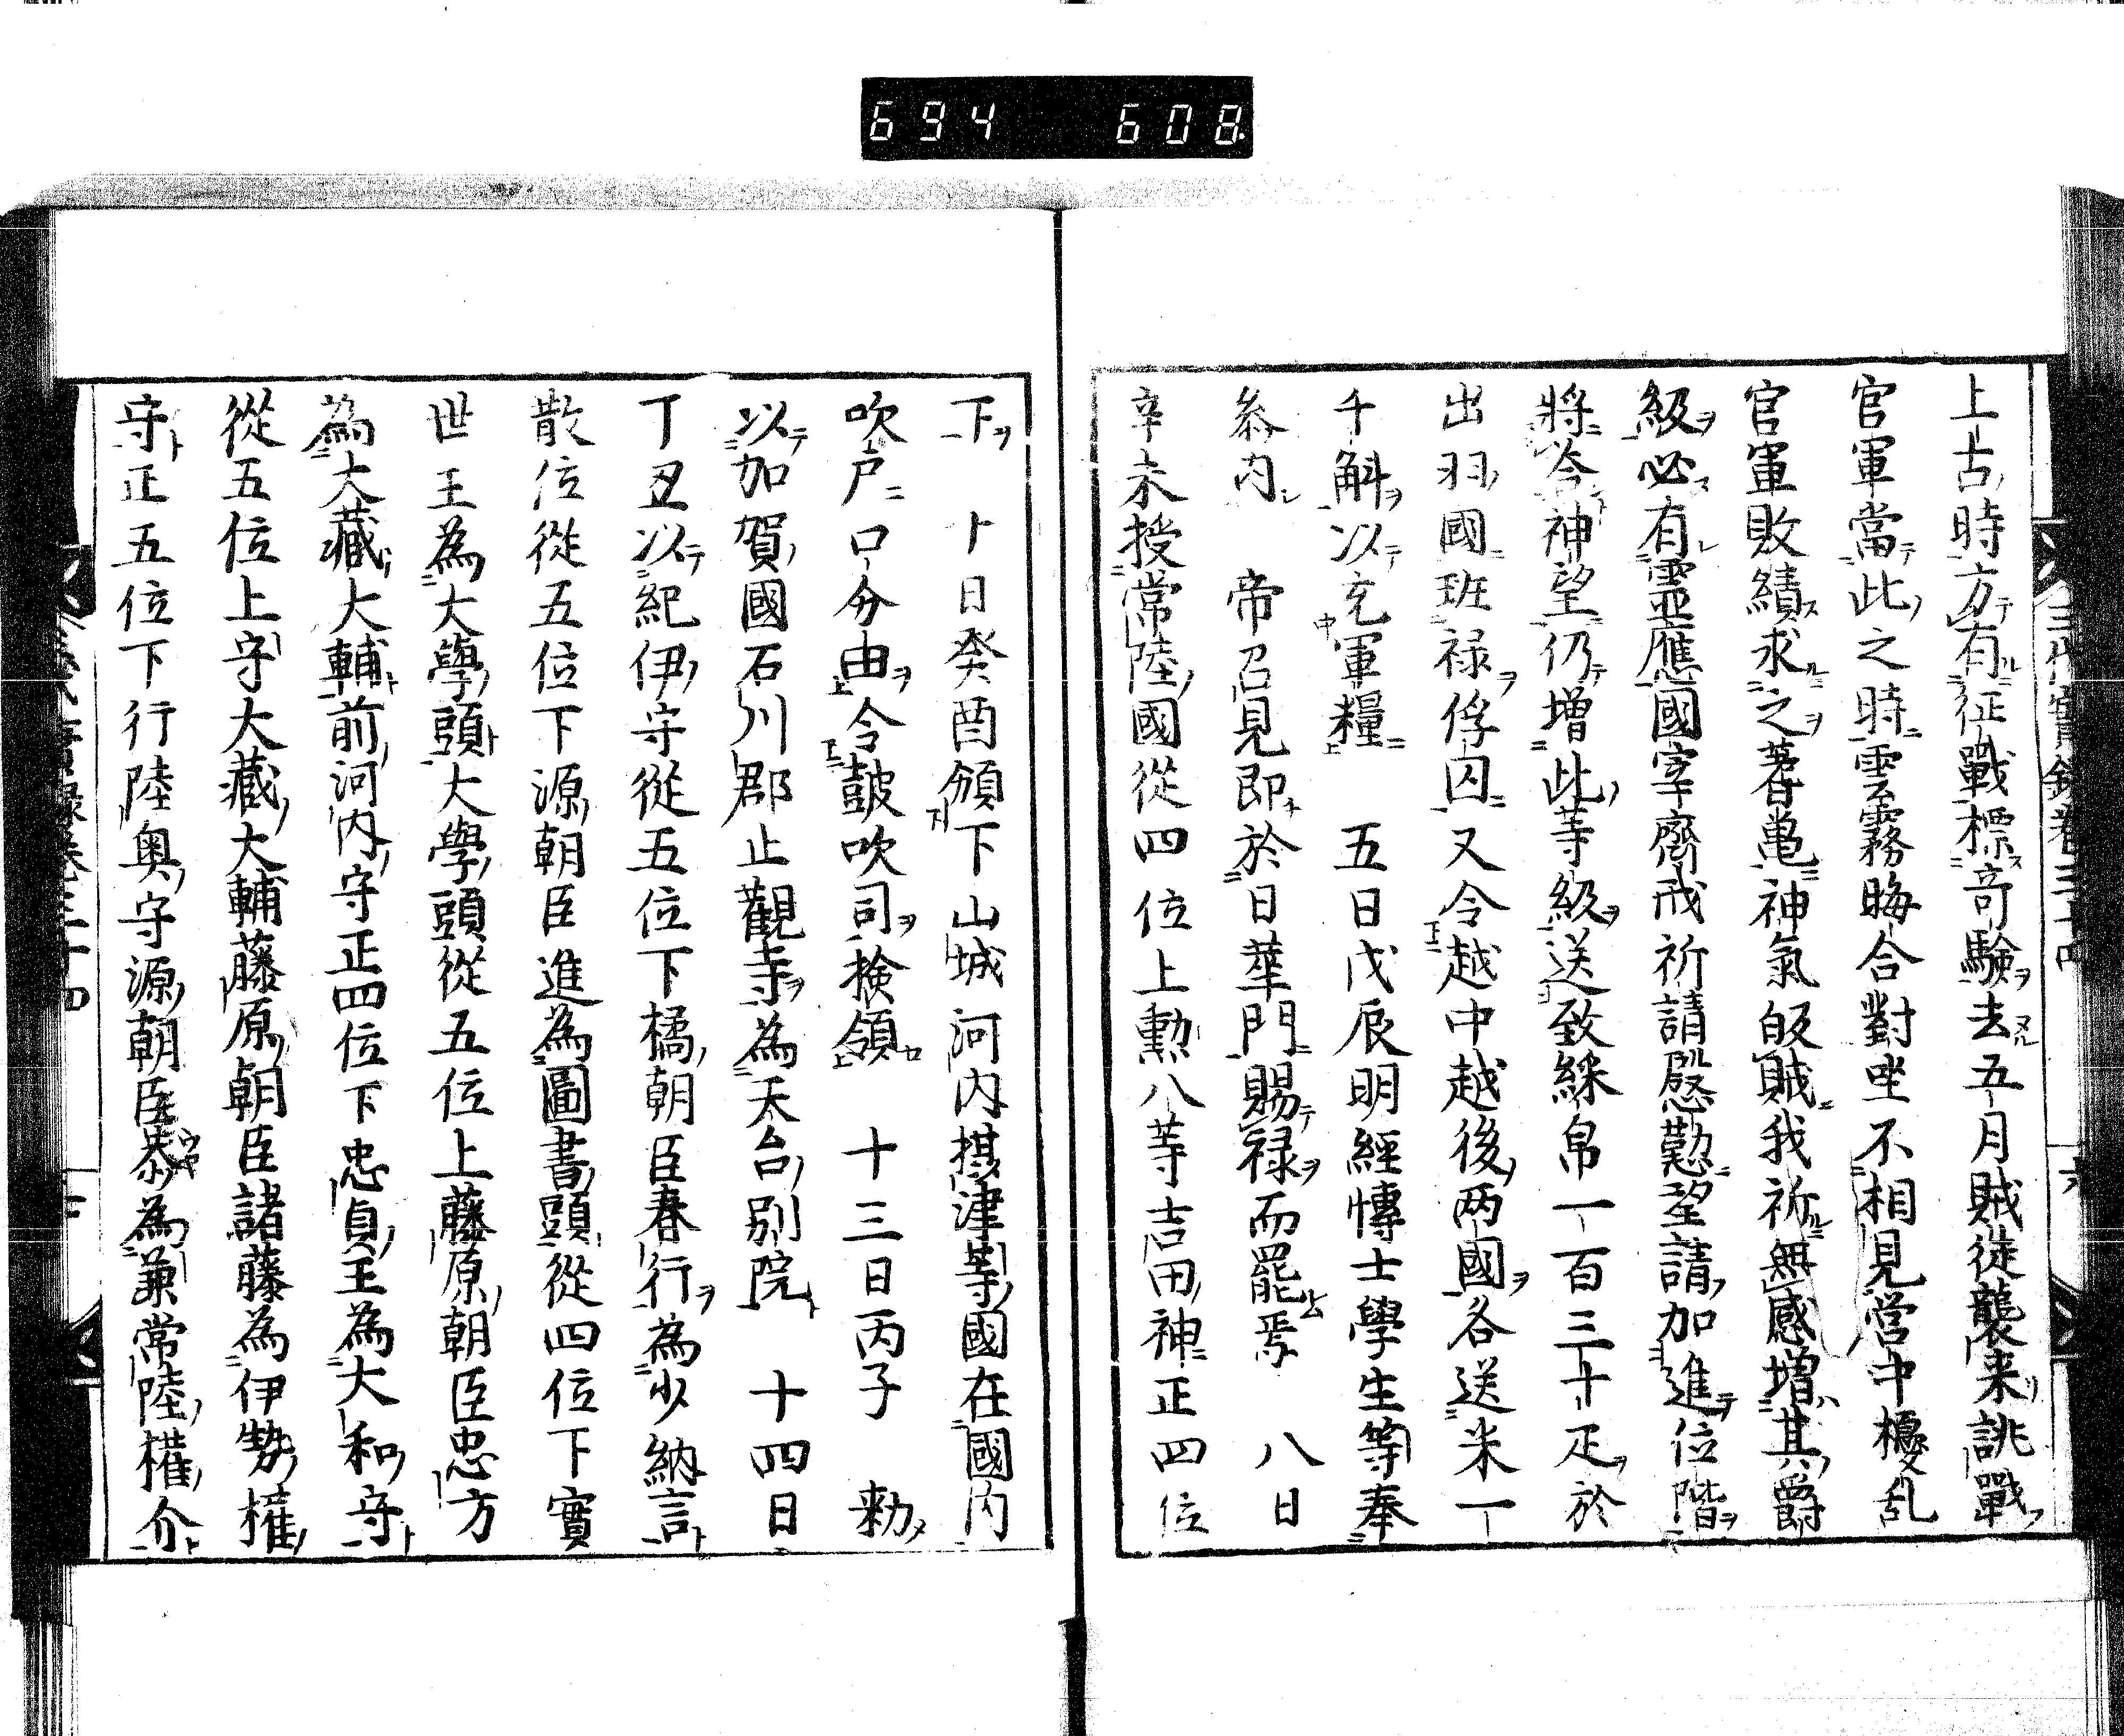 694 608
上古時方有征戰標奇驗去五月賊徒襲来誂戰
官軍當此之時雲霧晦合對坐不相見営中擾乱
官軍敗績求之蓍亀神氣皈賊我祈無感増其爵
級必有霊應國宰齋戒祈請慇懃望請加進位階
將答神望仍増此等級送致綵帛一百三十疋於
出羽國班禄俘囚又令越中越後两國各送米一
千斛以充軍糧　五日戊辰明經愽士學生等奉
参内　帝召見即於日華門賜禄而罷焉　八日
辛未授常陸國從四位上勲八等吉田神正四位
下　十日癸酉頒下山城河内摂津等國在國内
吹户口分由令鼓吹司検領　十三日丙子　勅
以加賀國石川郡止觀寺為天台别院　十四日
丁丑以紀伊守從五位下橘朝臣春行為少納言
散位從五位下源朝臣進為圖書頭從四位下實
世王為大學頭大學頭從五位上藤原朝臣忠方
為大藏大輔前河内守正四位下忠貞王為大和守
從五位上守大藏大輔藤原朝臣諸藤為伊勢権
守正五位下行陸奥守源朝臣恭為兼常陸權介